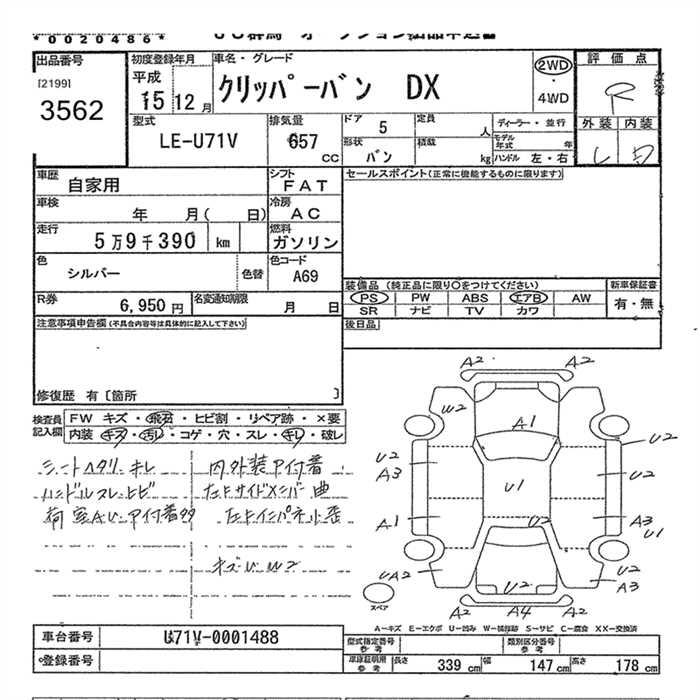 *0020486*
出品番号
[2199]
3562
初度登録年月
平成
15年12月
車名・グレード
クリッパーバン DX
2WD
・
4WD
評価点
R
外装 内装
型式
LE-U71V
排気量
657
cc
ドア
5
定員
人
ディーラー・並行
モデル年式 年
形状
バン
積載
kg
ハンドル 左・右
車歴
自家用
シフト
FAT
セールスポイント(正常に機能するものに限ります)
車検
年 月( 日)
冷房
AC
走行
5万9千390 km
燃料
ガソリン
色
シルバー
色替
色コード
A69
装備品(純正品に限り○をつけてください)
新車保証書
PS PW ABS エアB AW
有・無
SR ナビ TV カワ
R券
6,950円
名変通知期限
月 日
後日品
注意事項申告欄(不具合内容等は具体的に記入して下さい)
修復歴 有〔箇所 〕
検査員記入欄
FW キズ・飛石・ヒビ割・リペア跡・×要
内装 キズ・汚レ・コゲ・穴・スレ・キレ・破レ
シートヘタリ キレ
ハンドルスレ ヒビ
内外装ア付着
左上サイドメンバー曲
キズ U W2
A2 A2
W2 A1
U2
U2 A3
U1
U2
A1 U2 A3 U1
UA2 U2 A3
A2 A4 A2
スペア
A-キズ E-エクボ U-凹み W-補修跡 S-サビ C-腐食 XX-交換済
車台番号
U71V-0001488
登録番号
型式指定番号 参考
類別区分番号 参考
車庫証明用 参考
長さ 339cm 幅 147cm 高さ 178cm